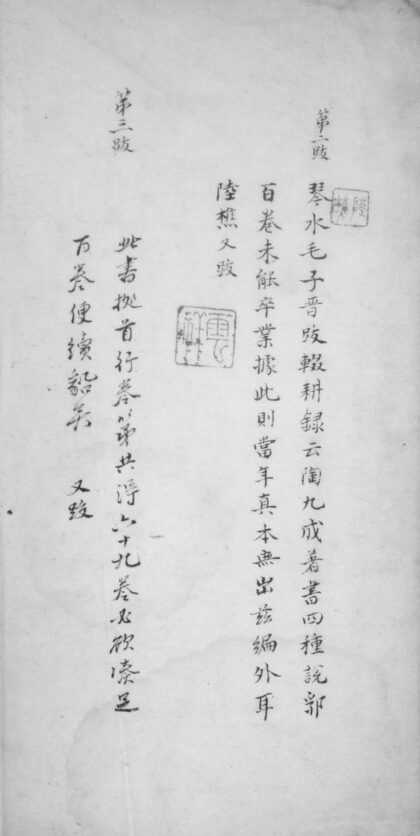 第二跋
琴水毛子晉跋輟耕録云陶九成著書四種說郛
百卷未能卒業據此則當年真本無出茲編外耳
陸樵又跋
第三跋
此書拠首行卷次第共得六十九卷必欲凑足
百卷便續貂矣 又跋